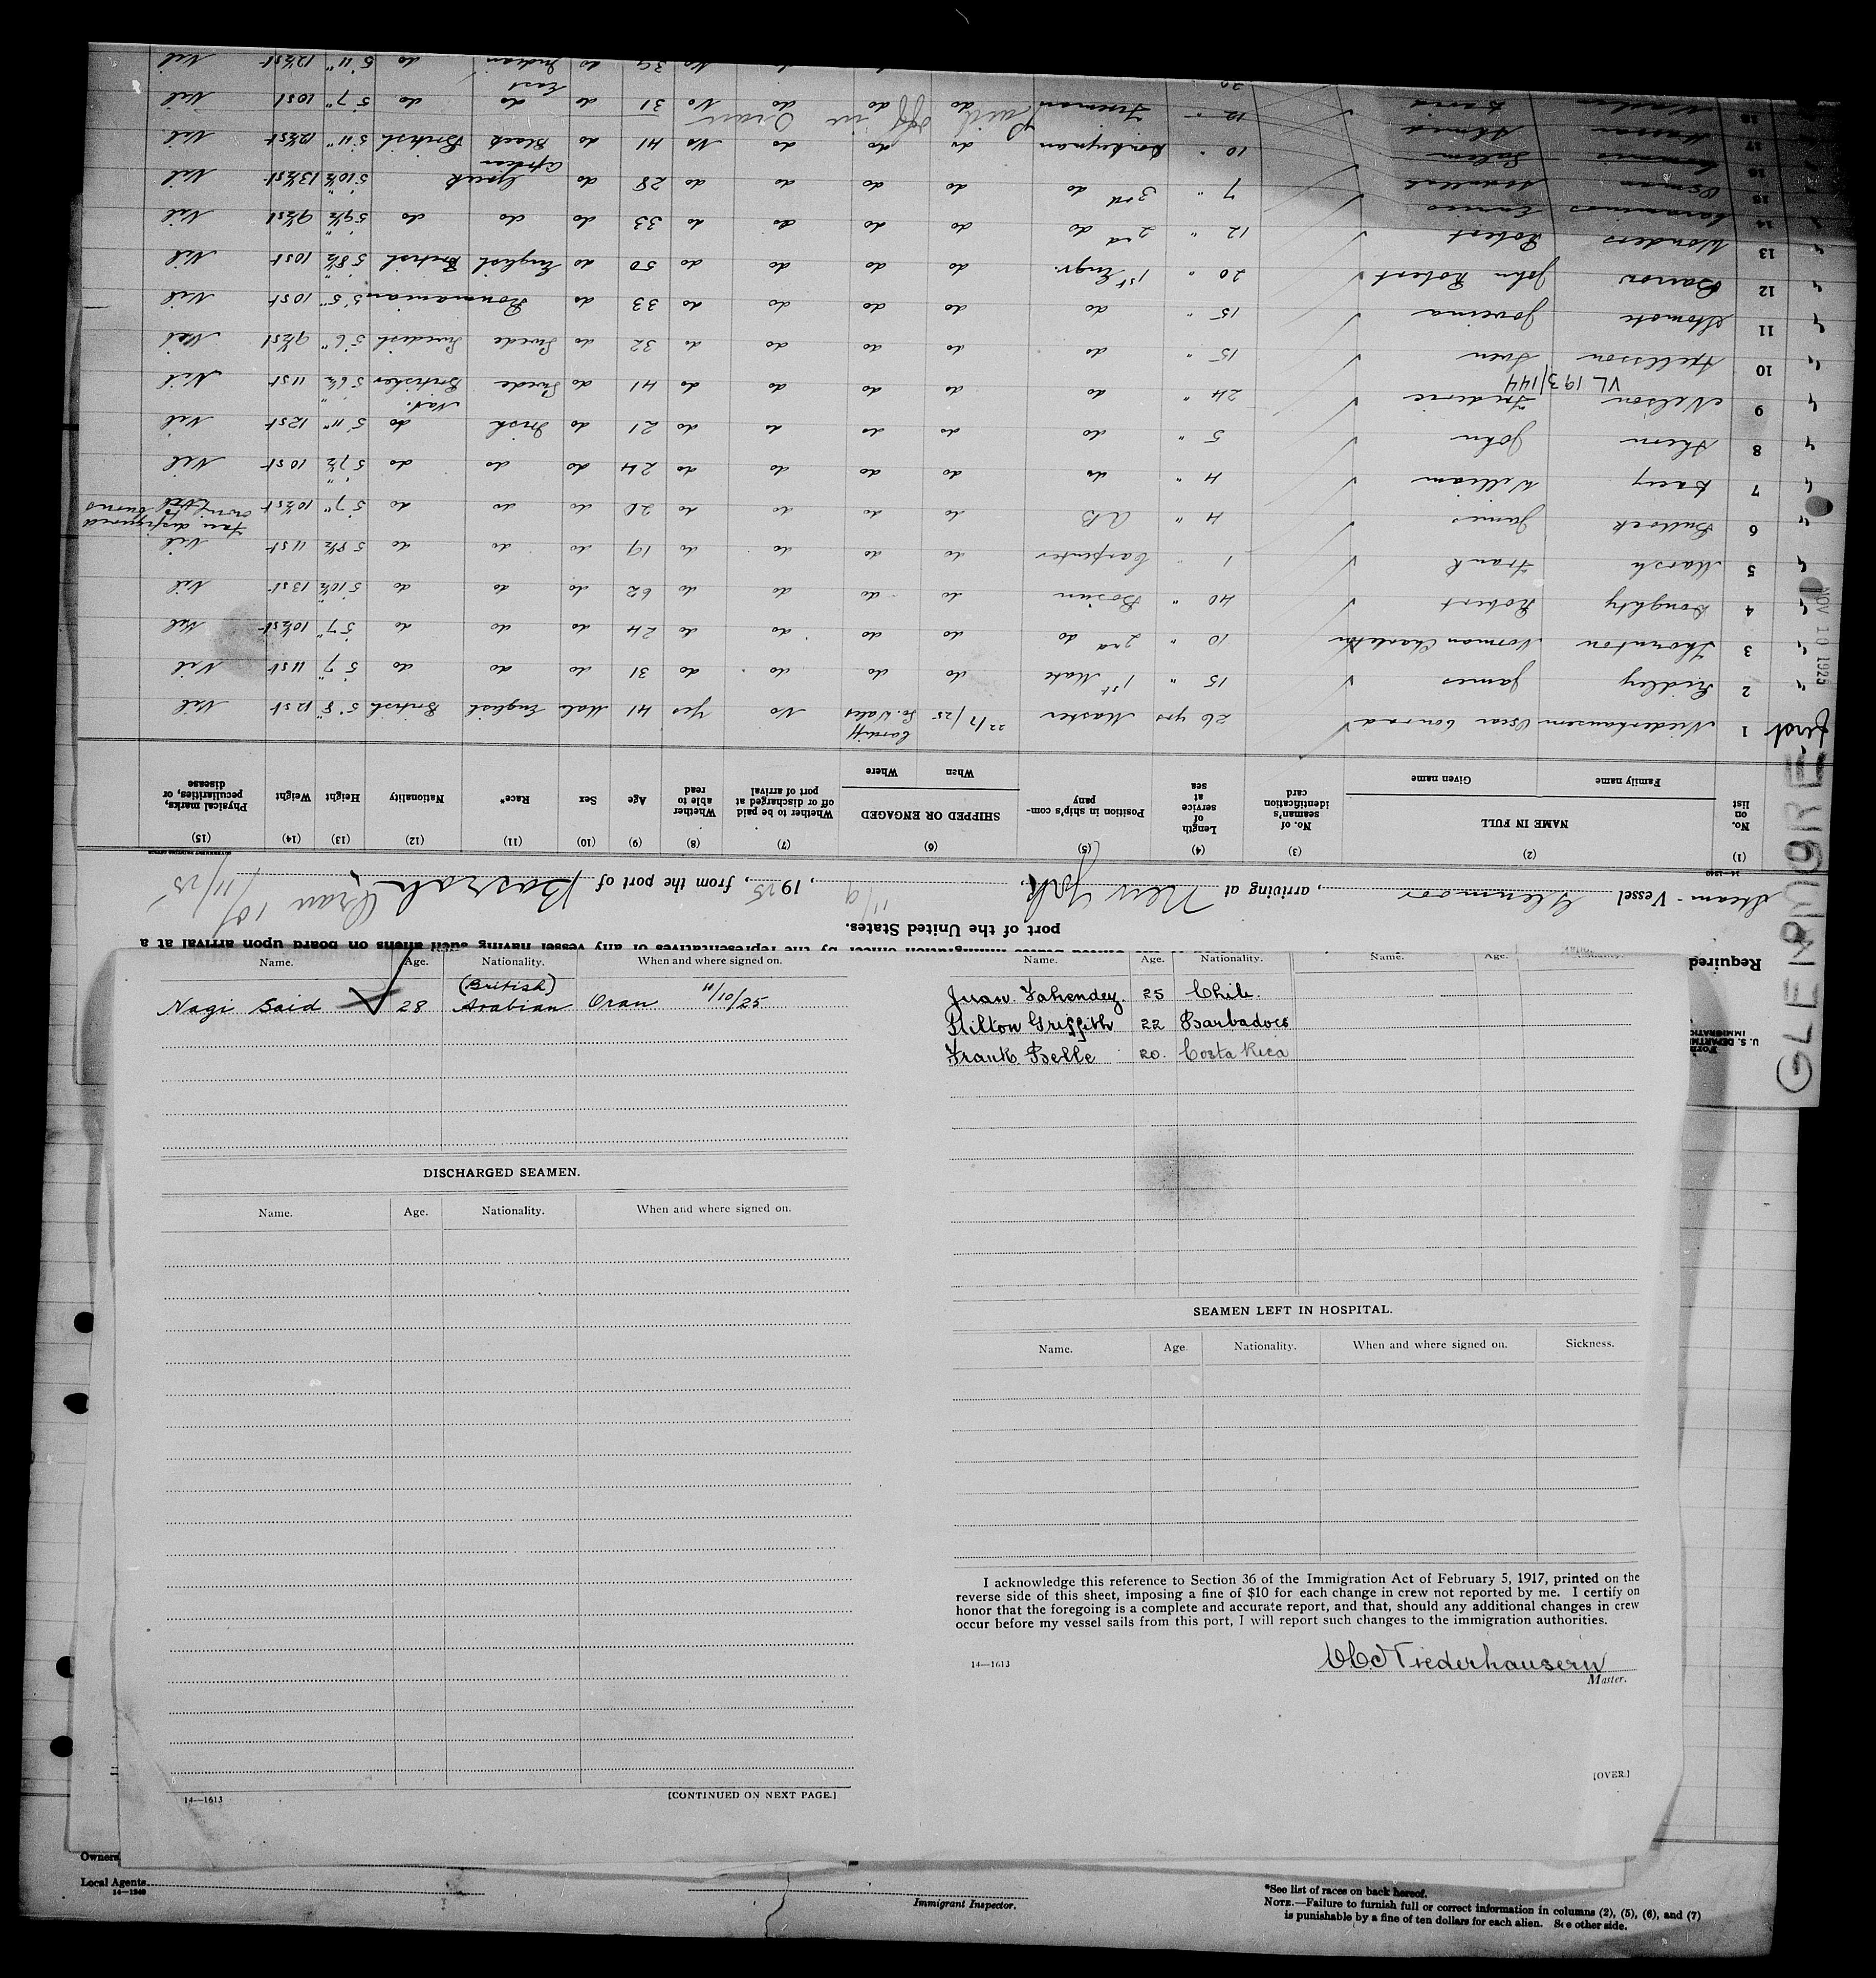 Name. Age. Nationality. When and where signed on.
Nagi Said 28 (British) Arabian Oran 11/10/25
DISCHARGED SEAMEN.
Name. Age. Nationality. When and where signed on.
14—1613 [CONTINUED ON NEXT PAGE.]
Name. Age. Nationality. Name. Age. Nationality.
Juan 25 Chile.
Hilton Griffith 22 Barbadoes
Frank Belle 20. Costa Rica
SEAMEN LEFT IN HOSPITAL.
Name. Age. Nationality. When and where signed on. Sickness.
I acknowledge this reference to Section 36 of the Immigration Act of February 5, 1917, printed on the
reverse side of this sheet, imposing a fine of $10 for each change in crew not reported by me. I certify on
honor that the foregoing is a complete and accurate report, and that, should any additional changes in crew
occur before my vessel sails from this port, I will report such changes to the immigration authorities.
14—1613
Niederhausern
Master.
[OVER.]
Owners
Local Agents
14—1240
Immigrant Inspector.
*See list of races on back hereof.
NOTE.—Failure to furnish full or correct information in columns (2), (5), (6), and (7)
is punishable by a fine of ten dollars for each alien. See other side.
GLENMORE
NOV 10 1925
Required
port of the United States.
Steam-Vessel Glenmoor, arriving at New York, 11/9, 1925, from the port of Basrah Oran
(1) (2) (3) (4) (5) (6) (7) (8) (9) (10) (11) (12) (13) (14) (15)
No. on list NAME IN FULL Family name Given name No. of seaman's identification card Length of service at sea Position in ship's company SHIPPED OR ENGAGED When Where Whether to be paid off or discharged at port of arrival Whether able to read Age Sex Race* Nationality Height Weight Physical marks, peculiarities, or disease
1 Niederhausern Oscar Conrad 26 yrs Master 22/7/25 Cardiff So. Wales No Yes 41 Male English British 5' 8" 12 st Nil
2 Ridley James 15 " 1st Mate do do do do 31 do do do 5' 7" 11 st Nil
3 Thornton Norman Charlton 10 " 2nd do do do do do 24 do do do 5' 7" 10½ st Nil
4 Doughty Robert 40 " Bosun do do do do 62 do do do 5' 10½" 13 st Nil
5 Marsh Frank 1 " Carpenter do do do do 19 do do do 5' 8½" 11 st Nil
6 Bullock James 4 " AB do do do do 20 do do do 5' 7" 10½ st Face disfigured owing to burns
7 Lacey William 4 " do do do do do 24 do do do 5' 7½" 10 st Nil
8 Ahern John 5 " do do do do do 21 do Irish do 5' 11" 12 st Nil
9 Nelson Frederic 24 " do do do do do 41 do Swede Nat. Britisher 5' 6½" 11 st Nil
VL 193/144
10 Axellsson Sven 15 " do do do do do 32 do Swede Swedish 5' 6" 9½ st Nil
11 15 " do do do do do 33 do Roumanian 5' 5" 10 st Nil
12 Barron John Robert 20 " 1st Engr. do do do do 50 do English British 5' 8½" 10 st Nil
13 Wonders Robert 12 " 2nd do do do do do 33 do do do 5' 9½" 9½ st Nil
14 7 " 3rd do do do do do 28 do Greek 5' 10½" 13½ st Nil
15 Osman 10 " Donkeyman do do do No 41 do African Black British 5' 11" 12½ st Nil
16 Salem 12 " Fireman do do do No 31 do do do 5' 7" 10 st Nil
Paid off in Oran
17 Hassan Ahmed No 39 do East Indian do 5' 11" 12½ st Nil
18